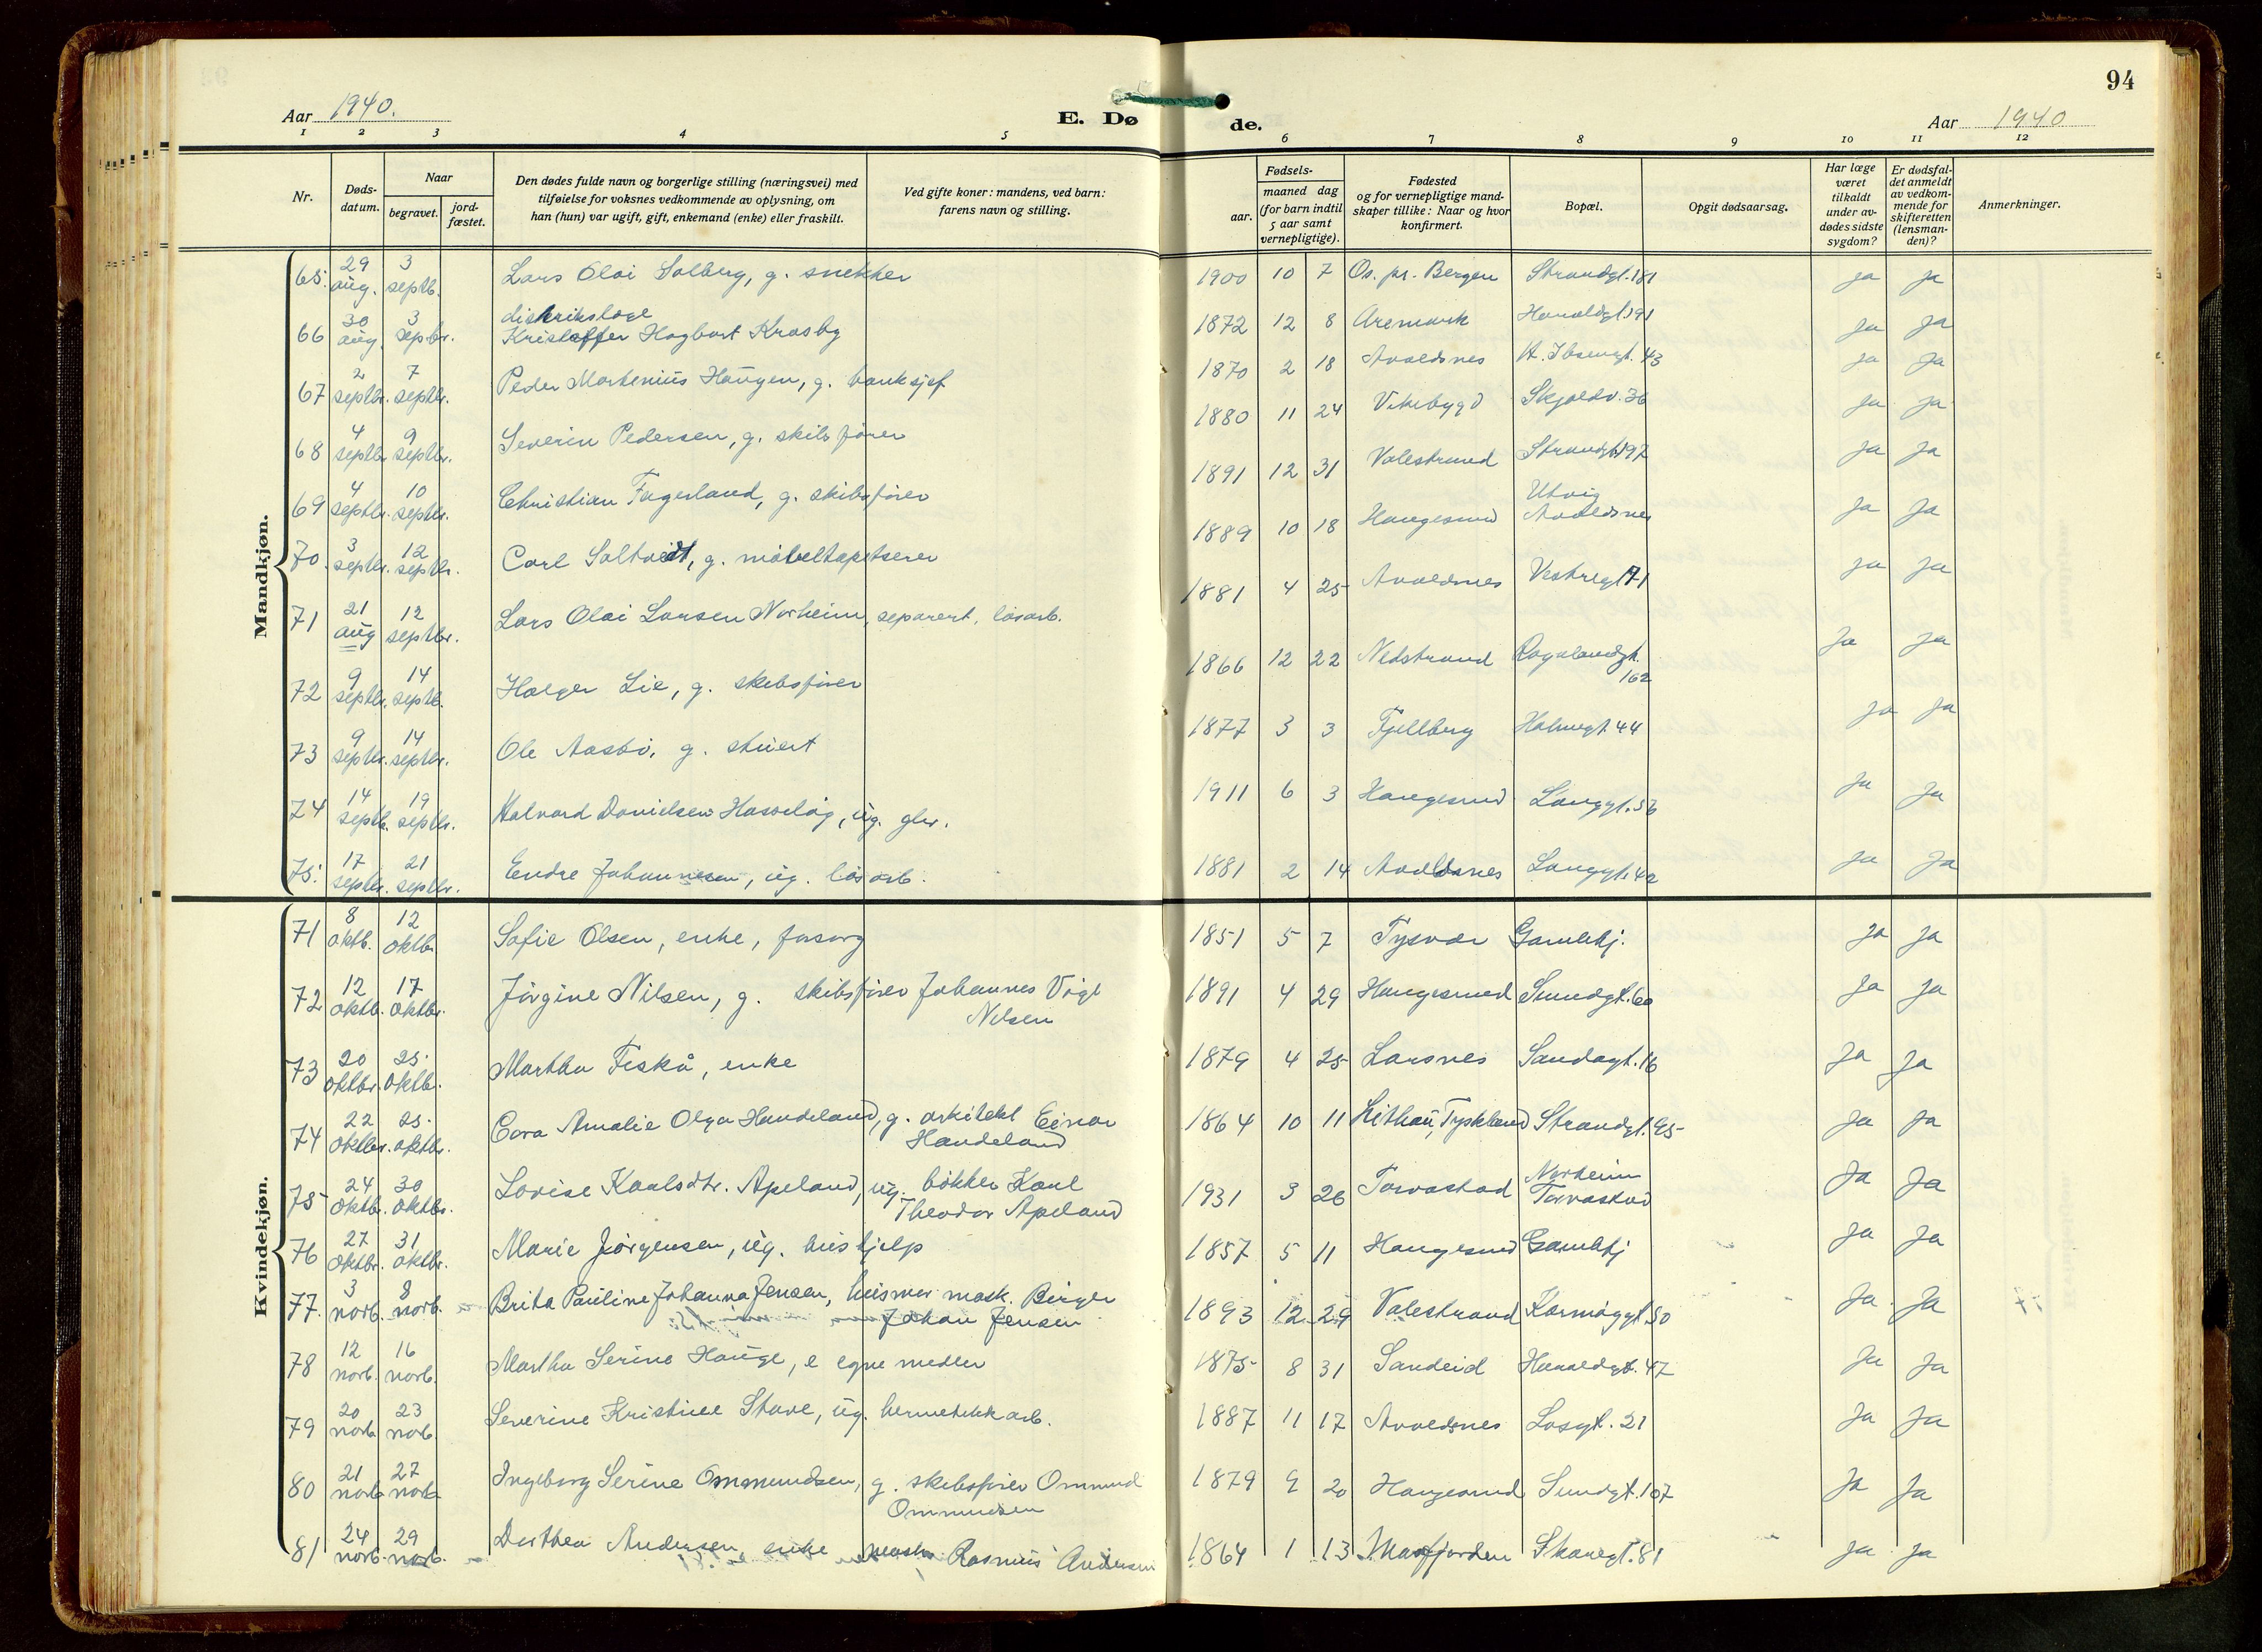 94
Aar 1940.
E. Døde.
Aar 1940
1 2 3 4 5 6 7 8 9 10 11 12
Nr.
Døds-datum.
Naar
begravet.
jord-fæstet.
Den dødes fulde navn og borgerlige stilling (næringsvei) med
tilføielse for voksnes vedkommende av oplysning, om
han (hun) var ugift, gift, enkemand (enke) eller fraskilt.
Ved gifte koner: mandens, ved barn:
farens navn og stilling.
Fødsels-
aar.
maaned dag
(for barn indtil
5 aar samt
vernepligtige).
Fødested
og for vernepligtige mand-
skaper tillike: Naar og hvor
konfirmert.
Bopæl.
Opgit dødsaarsag.
Har læge
været
tilkaldt
under av-
dødes sidste
sygdom?
Er dødsfal-
det anmeldt
av vedkom-
mende for
skifteretten
(lensman-
den)?
Anmerkninger.
Mandkjøn.
65. 29 aug. 3 septb. Lars Olai Solberg, g. snekker 1900 10 7 Os. pr. Bergen Strandgt. 181 ja ja
66 30 aug. 3 septbr. distriktslæge
Kristoffer Hagbart Krosby 1872 12 8 Aremark Haraldgt. 191 ja ja
67 2 septbr. 7 septbr. Peder Martenius Haugen, g. banksjef 1870 2 18 Avaldsnes H. Ibsengt. 43 ja ja
68 4 septbr 9 septbr. Severin Pedersen, g. skibsfører 1880 11 24 Vikebygd Skjoldv. 36 ja ja
69 4 septbr. 10 septbr. Christian Fagerland, g. skibsfører 1891 12 31 Valestrand Strandgt. 197 ja ja
70. 3 septbr. 12 septbr. Carl Saltveidt, g. møbeltapetserer 1889 10 18 Haugesund Utvig
Avaldsnes ja ja
71 21 aug 12 septbr. Lars Olai Larsen Norheim, separert, løsarb. 1881 4 25 Avaldsnes Vestregt 71 ja ja
72 9 septbr. 14 septb. Holger Lie, g. skibsfører 1866 12 22 Nedstrand Rogalandgt.
162 Ja ja
73 9 septbr. 14 septbr. Ole Aasbø, g. stuert 1877 3 3 Fjellberg Holmegt. 44 ja ja
74 14 septb. 19 septbr. Halvard Danielsen Hasseløy, ug. glw. 1911 6 3 Haugesund Langgt. 56 ja ja
75. 17 septbr. 21 septbr. Endre Johannesen, ug. løsarb. 1881 2 14 Avaldsnes Langgt. 42 ja ja
Kvindekjøn.
71 8 oktb. 12 oktb. Sofie Olsen, enke, forsorg 1851 5 7 Tysvær Gamlehj. ja ja
72 12 oktb. 17 oktbr. Jørgine Nilsen, g. skibsfører Johannes Vigt
Nilsen 1891 4 29 Haugesund Sundgt. 60 ja ja
73 20 oktbr. 25. oktb. Martha Fiskå, enke 1879 4 25 Larsnes Sandagt. 16 ja ja
74 22 oktbr. 25. oktbr. Cora Amalie Olga Handeland, g. arkitekt Einar
Handeland 1864 10 11 Tyskland Strandgt. 95 ja ja
75 24 oktb. 30 oktbr. Lovise Karlsdtr. Apeland, ug. bøkker Karl
Theodor Apeland 1931 3 26 Torvastad Norheim
Torvastad Ja Ja
76 27 oktbr. 31 oktbr. Marie Jørgensen, ug. hushjelp 1857 5 11 Haugesund Gamlehj ja ja
77. 3 novb. 8 novb. Brita Pauline Johanna Jensen, husmor mask. Birger
Johan Jensen 1893 12 29 Valestrand Karmøygt. 50 Ja Ja
78 12 novb. 16 novb. Martha Serine Hauge, e egne midler 1875 8 31 Sandeid Haraldgt. 47 ja ja
79 20 novb 23 novb. Severine Kristine Stave, ug. hermetikkarb. 1887 11 17 Avaldsnes Losgt. 21 ja ja
80 21 novb 27 novb Ingeborg Serine Ommundsen, g. skibsfører Ommund
Ommundsen 1879 9 20 Haugesund Sundgt. 107 ja ja
81 24 novb. 29 novb. Dorthea Andersen, enke Rasmus Andersen 1864 1 13 Masfjorden Skaregt. 81 ja ja